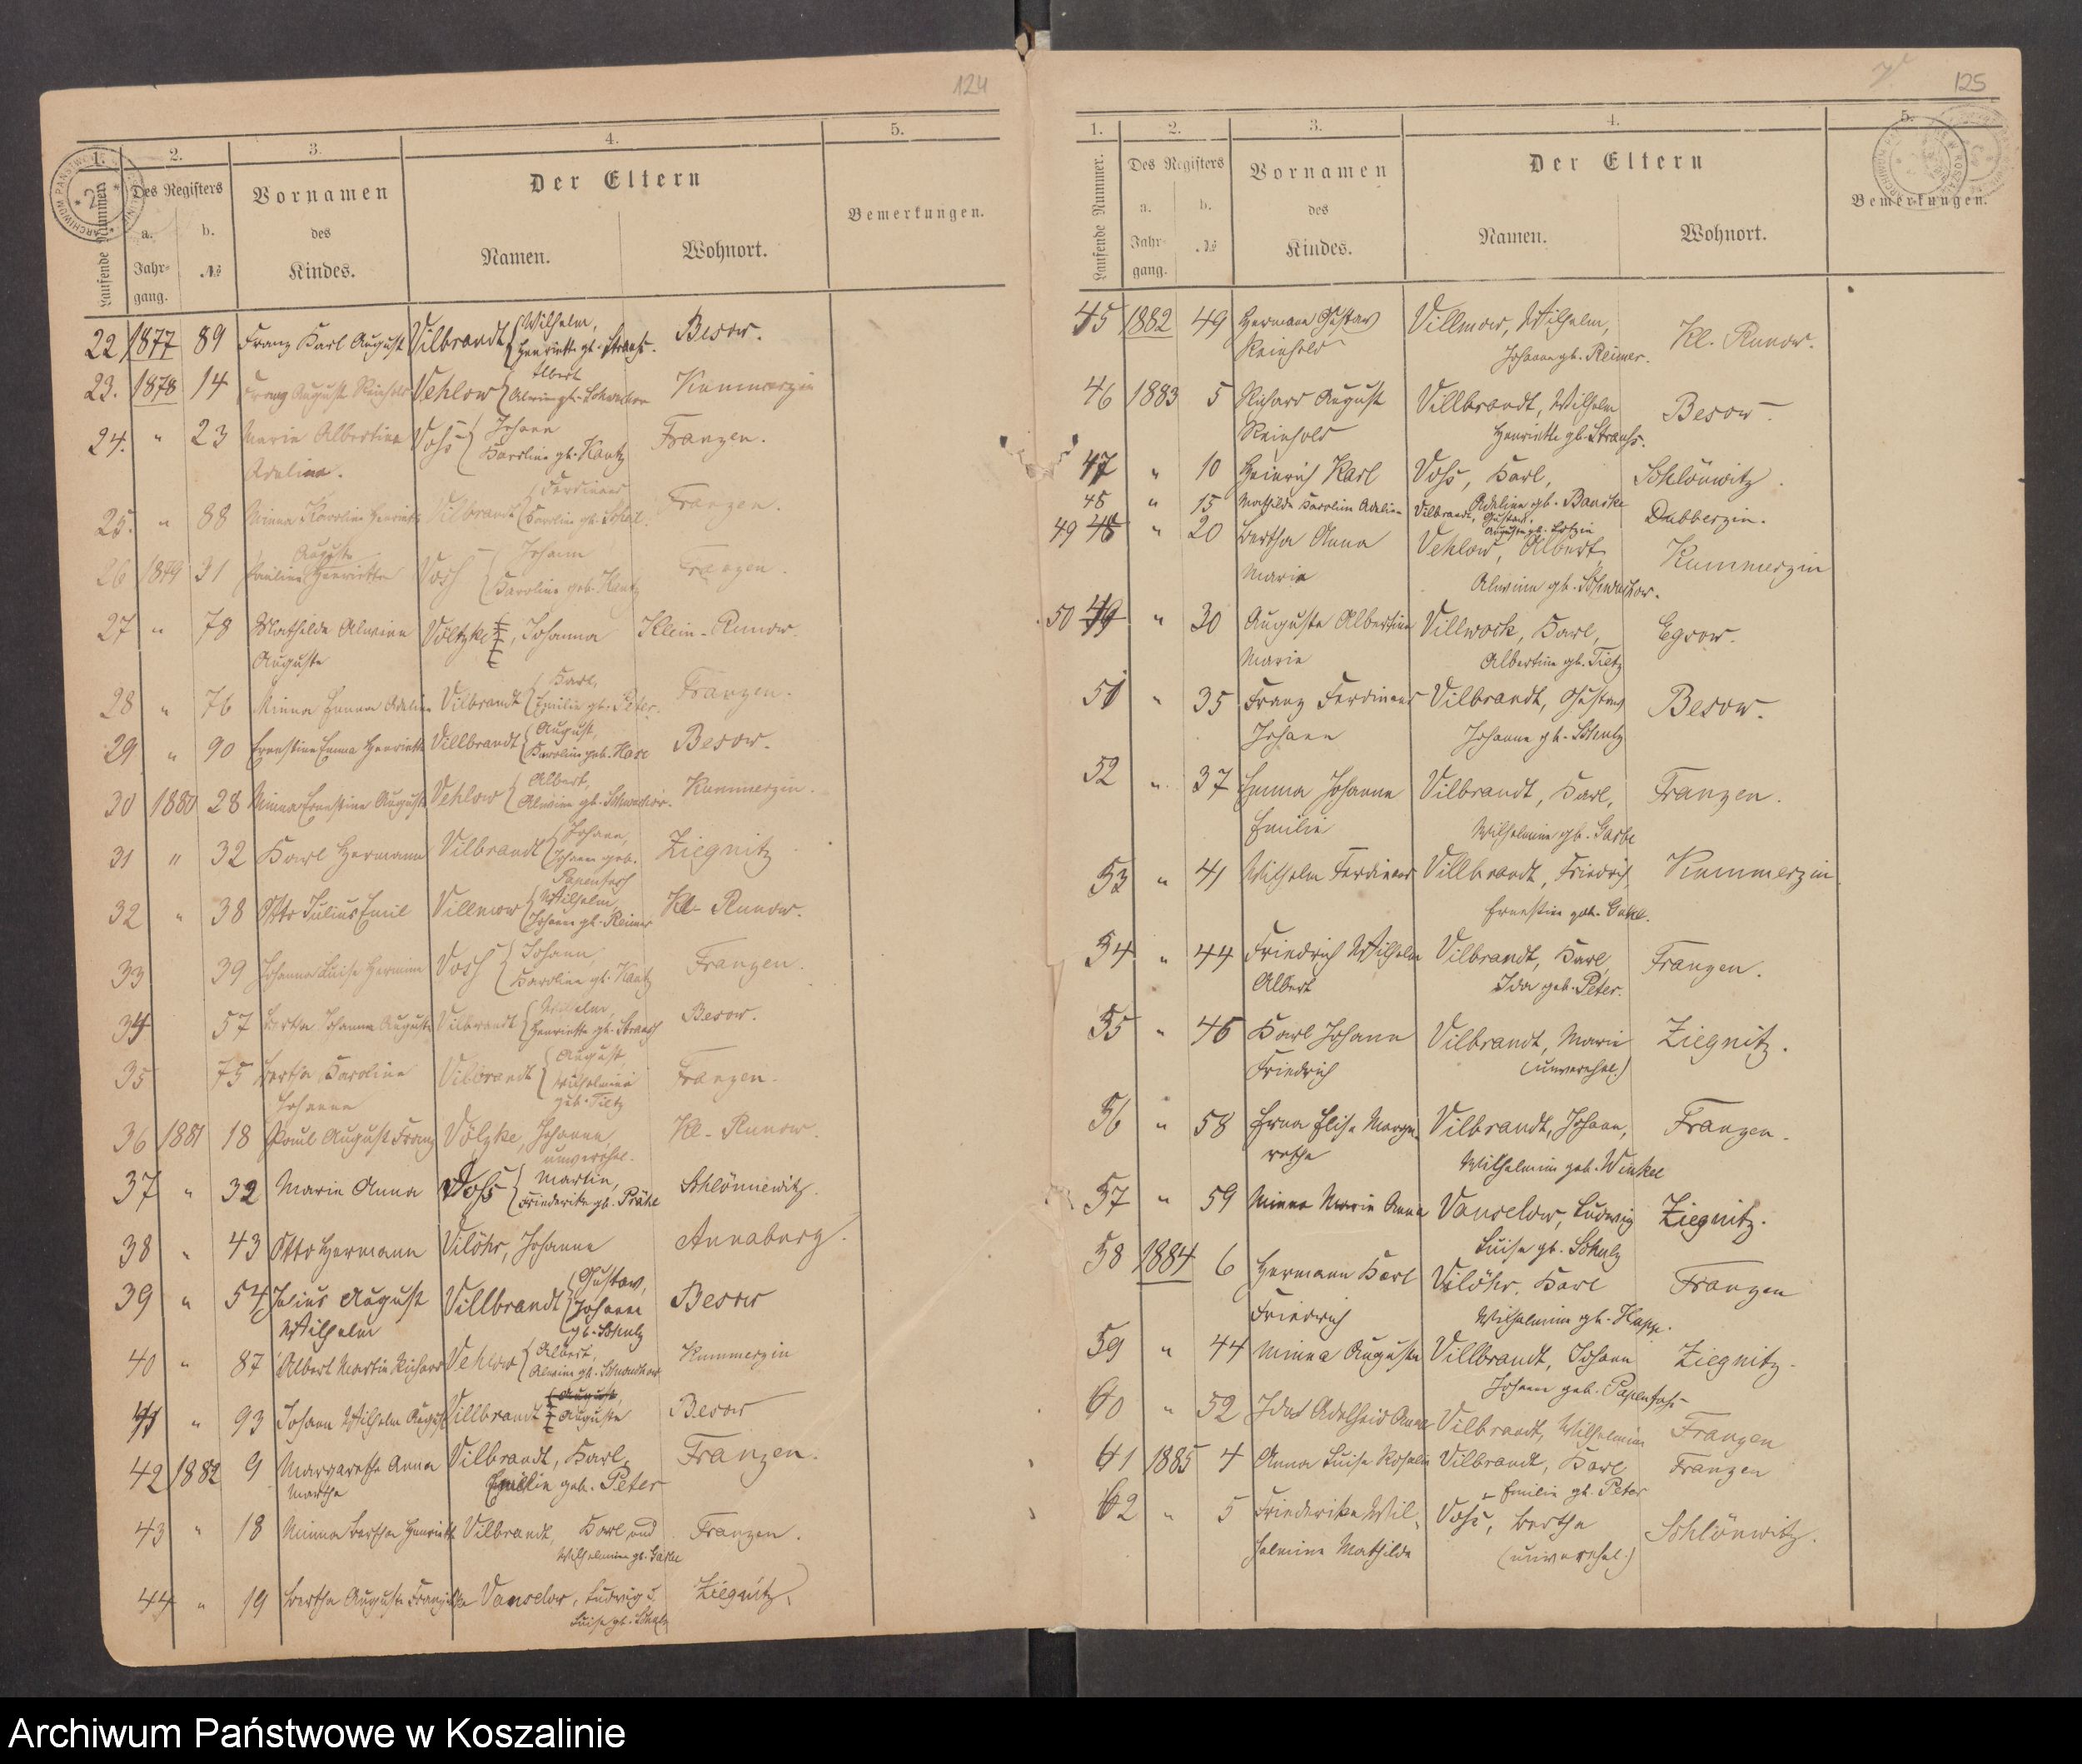 124
1. 2. 3. 4. 5.
Laufende Nummer.
Des Registers
a. Jahrgang.
b. №
Vornamen
des
Kindes.
Der Eltern
Namen.
Wohnort.
Bemerkungen.
22 1877 89 Franz Karl August Vilbrandt { Wilhelm, Besow.
Henriette gb. Strauß.
23. 1878 14 Franz August Reinhold Vehlow { Albert Kummerzin
Alwine gb. Schwochow
24. " 23 Marie Albertine Voß { Johann Franzen.
Adeline. Karoline gb. Kautz
25. " 88 Minna Karoline Henriette Vilbrandt { Ferdinand Franzen.
Karoline gb.
26 1879 31 Pauline Auguste Henriette Voß { Johann Franzen.
Karoline geb. Kautz
27 " 78 Mathilde Alwine Völtzke, Johanna Klein-Runow.
Auguste
28 " 76 Minna Emma Adeline Vilbrandt { Karl, Franzen.
Emilie gb. Peter.
29 " 90 Ernestine Emma Henriette Villbrandt { August, Besow.
Karoline geb. Hase
30 1880 28 Minna Ernestine Auguste Vehlow { Albert, Kummerzin.
Alwine gb. Schwochow.
31 " 32 Karl Hermann Vilbrandt { Johann, Ziegnitz
Johann geb.
Papenfoß
32 " 38 Otto Julius Emil Villmow { Wilhelm, Kl. Runow.
Johann gb. Reimer
33 39 Johanna Luise Hermine Voß { Johann, Franzen.
Karoline gb. Kautz
34 57 Bertha Johanna Auguste Vilbrandt { Wilhelm, Besow.
Henriette gb. Strauß
35 75 Bertha Karoline Vilbrandt { August, Franzen.
Johanna Wilhelmine
geb. Tietz
36 1881 18 Paul August Franz Völzke, Johanna, Kl. Runow.
unverehel.
37 " 32 Marie Anna Voß { Martin, Schlönnewitz.
Friederike gb. Prähl
38 " 43 Otto Hermann Vilöhr, Johanne Annaburg.
39 " 54 Julius August Villbrandt { Gustav, Besow
Wilhelm Johanne
gb. Schulz
40 " 87 Albert Martin Richard Vehlow { Albert, Kummerzin
Alwine gb. Schwochow
41 " 93 Johann Wilhelm August Villbrandt August, Besow
Auguste
42 1882 9 Margarethe Anna Vilbrandt, Karl, Franzen.
Martha Emilie geb. Peter
43 " 18 Minna Bertha Henriette Vilbrandt, Karl und Franzen.
Wilhelmine gb. Garbe
44 " 19 Bertha Auguste Franziska Vanselow, Ludwig u. Ziegnitz.
Luise gb. Schulz
125
1. 2. 3. 4. 5.
Laufende Nummer.
Des Registers
a. Jahrgang.
b. №
Vornamen
des
Kindes.
Der Eltern
Namen.
Wohnort.
Bemerkungen.
45 1882 49 Hermann Gustav Villmow, Wilhelm, Kl. Runow.
Reinhold Johanne gb. Reimer.
46 1883 5 Richard August Villbrandt, Wilhelm Besow.
Reinhold Henriette gb. Strauß.
47 " 10 Heinrich Karl Voß, Karl, Schlönwitz.
Adeline gb. Banske
48 " 15 Mathilde Karoline Adeline Vilbrandt, Gustav, Dubberzin.
Auguste gb.
49 48 " 20 Bertha Anna Vehlow, Albert Kummerzin
Marie Alwine gb. Schwochow.
50 49 " 30 Auguste Albertine Villwock, Karl, Egsow.
Marie Albertine gb. Tietz
51 " 35 Franz Ferdinand Vilbrandt, Gustav Besow.
Johann Johanne gb. Schulz
52 " 37 Emma Johanne Vilbrandt, Karl, Franzen.
Emilie Wilhelmine gb. Garbe
53 " 41 Wilhelm Ferdinand Villbrandt, Friedrich, Kummerzin.
Ernestine geb.
54 " 44 Friedrich Wilhelm Vilbrandt, Karl, Franzen.
Albert Ida geb. Peter.
55 " 46 Karl Johann Vilbrandt, Marie Ziegnitz.
Friedrich (unverehel.)
56 " 58 Erna Elise Marga- Vilbrandt, Johann, Franzen.
rethe Wilhelmine geb. Winkel
57 " 59 Minna Marie Anna Vanselow, Ludwig Ziegnitz.
Luise gb. Schulz
58 1884 6 Hermann Karl Vilöhr, Karl Franzen
Friedrich Wilhelmine gb. Happe.
59 " 44 Minna Auguste Villbrandt, Johann Ziegnitz.
Johanne geb. Papenfuß
60 " 52 Ida Adelheid Anna Vilbrandt, Wilhelmine Franzen
61 1885 4 Anna Luise Rosalie Vilbrandt, Karl Franzen
Emilie gb. Peter
62 " 5 Friederike Wil- Voß, Bertha Schlönwitz.
helmine Mathilde (unverehel.)
Archiwum Państwowe w Koszalinie